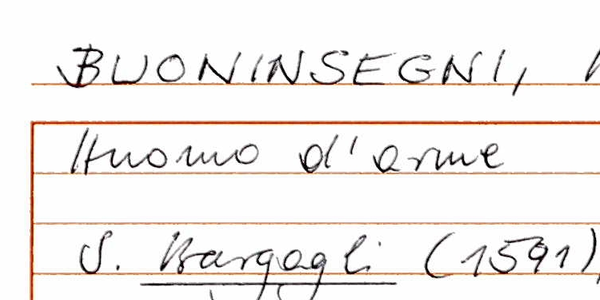 BUONINSEGNI,
Huomo d'arme
S. Bargagli (1591)